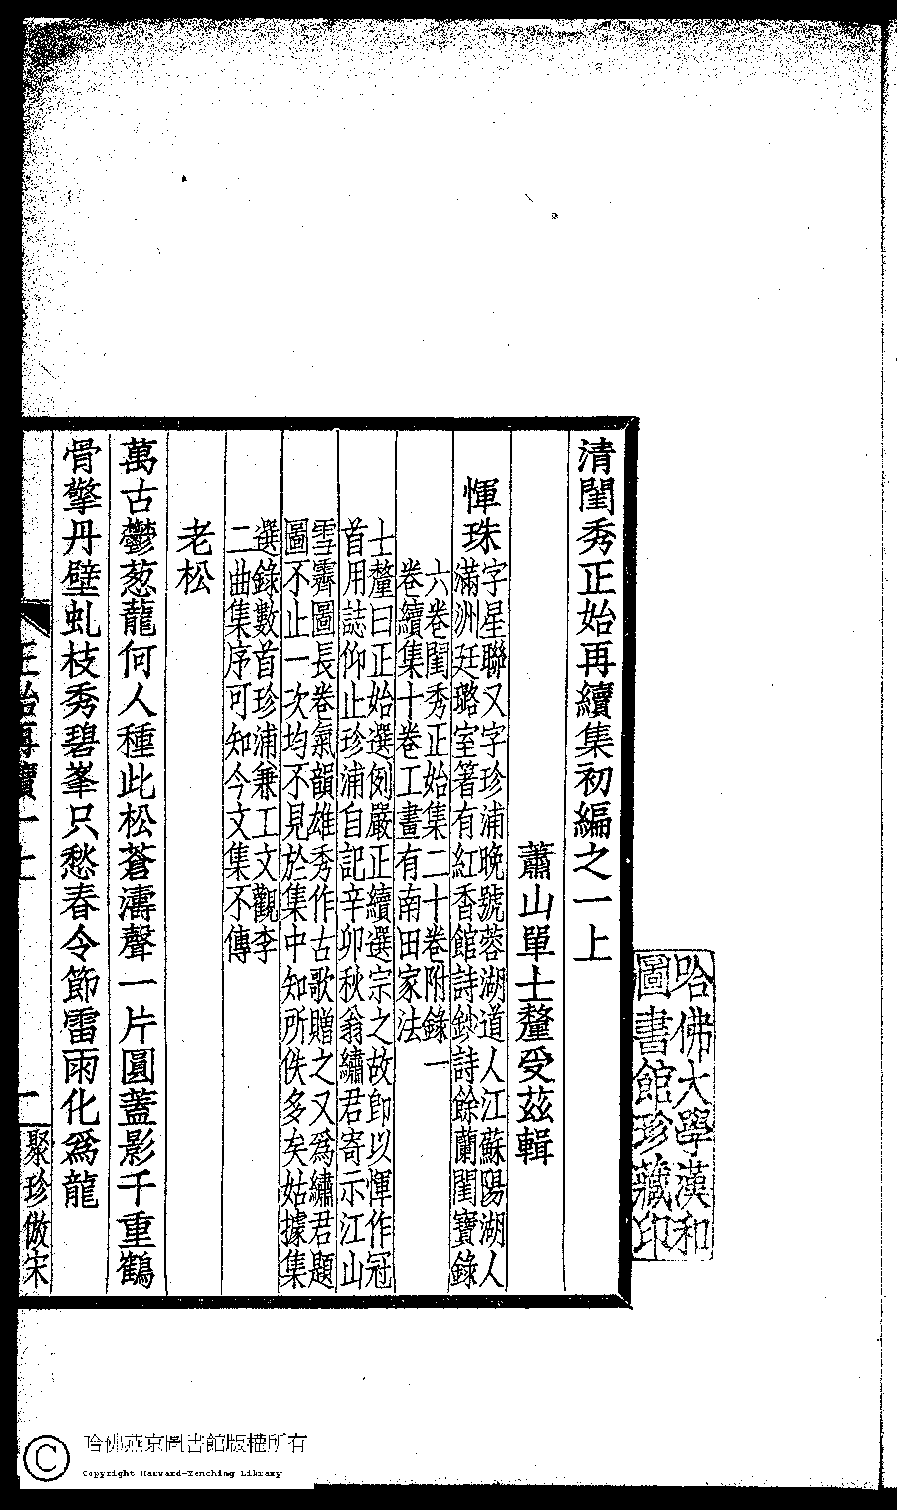 清閨秀正始再續集初編之一上
蕭山單士釐受茲輯
惲珠
字星聯又字珍浦晚號蓉湖道人江蘇陽湖人
滿洲廷璐室箸有紅香館詩鈔詩餘蘭閨寶錄
六卷閨秀正始集二十卷附錄一
卷續集十卷工畫有南田家法
士釐曰正始選例嚴正續選宗之故卽以惲作冠
首用誌仰止珍浦自記辛卯秋翁繡君寄示江山
雪霽圖長卷氣韻雄秀作古歌贈之又爲繡君題
圖不止一次均不見於集中知所佚多矣姑據集
選錄數首珍浦兼工文觀李
二曲集序可知今文集不傳
老松
萬古鬱葱蘢何人種此松蒼濤聲一片圓蓋影千重鶴
骨擎丹壁虬枝秀碧峯只愁春令節雷雨化爲龍
正始再續一上
一
聚珍倣宋
哈佛大學漢和
圖書館珍藏印
哈佛燕京圖書館版權所有
Copyright Harvard-Yenching Library